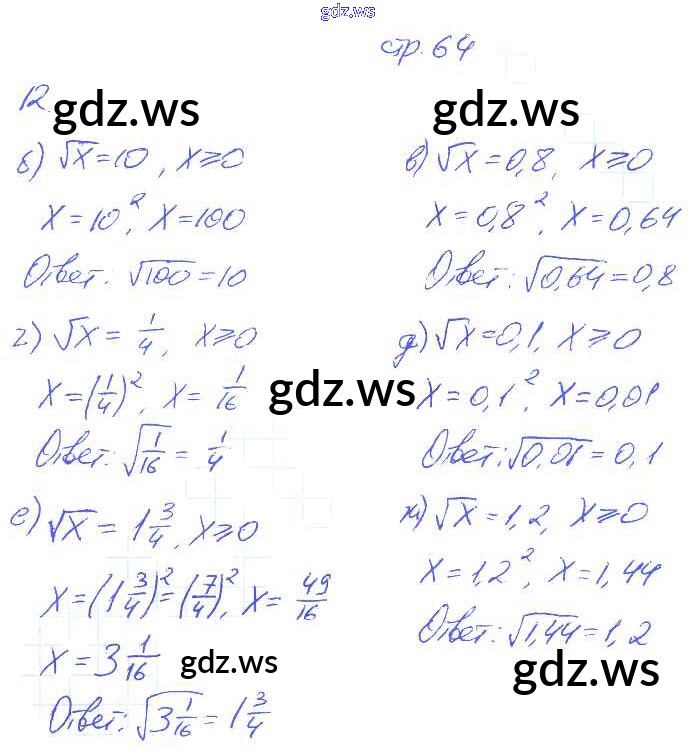 gdz.ws
стр. 64
12.
gdz.ws
gdz.ws
б) √x = 10, x ≥ 0
x = 10², x = 100
Ответ: √100 = 10
в) √x = 0,8, x ≥ 0
x = 0,8², x = 0,64
Ответ: √0,64 = 0,8
г) √x = 1/4, x ≥ 0
x = (1/4)², x = 1/16
gdz.ws
Ответ: √1/16 = 1/4
д) √x = 0,1, x ≥ 0
x = 0,1², x = 0,01
Ответ: √0,01 = 0,1
е) √x = 1 3/4, x ≥ 0
x = (1 3/4)² = (7/4)², x = 49/16
x = 3 1/16
gdz.ws
Ответ: √3 1/16 = 1 3/4
ж) √x = 1,2, x ≥ 0
x = 1,2², x = 1,44
Ответ: √1,44 = 1,2
gdz.ws